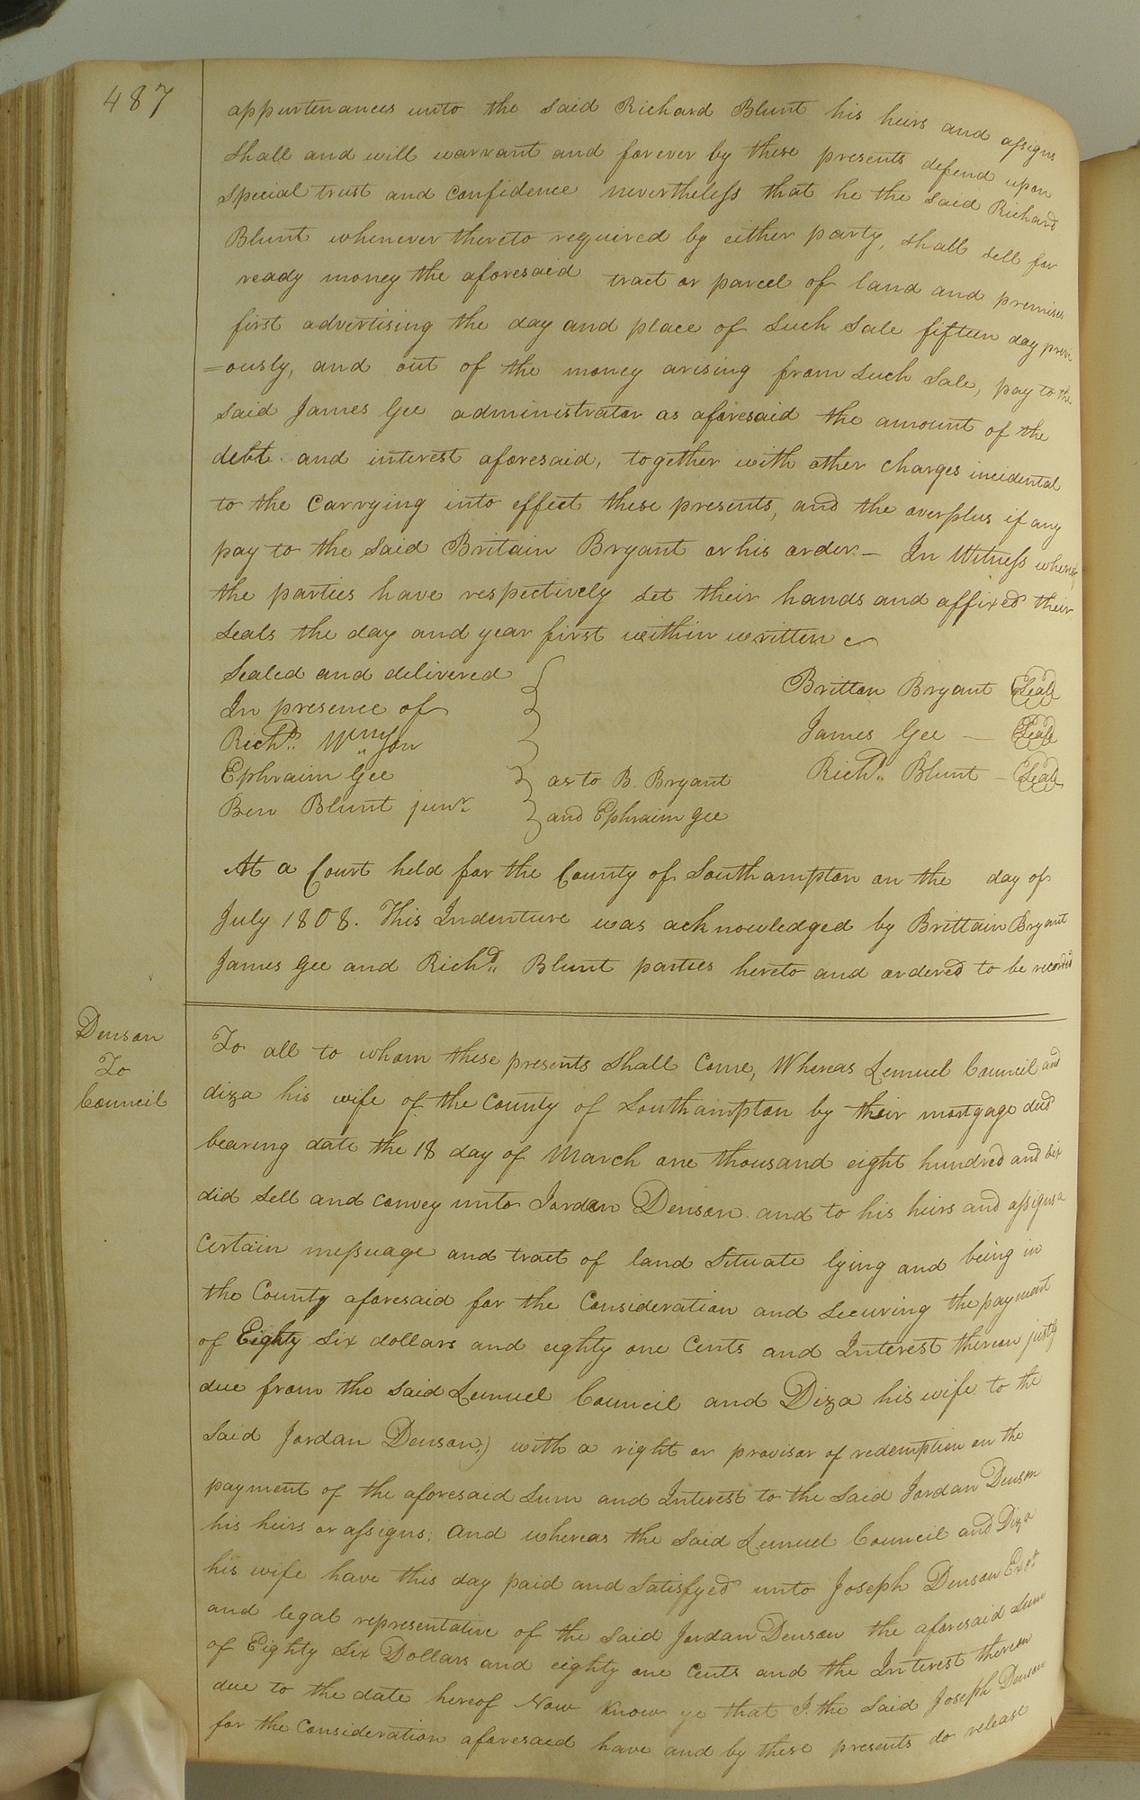 487
appurtenances unto the said Richard Blunt his heirs and assigns
shall and will warrant and forever by these presents defend upon
special trust and confidence nevertheless that he the said Richard
Blunt whenever thereto required by either party, shall sell for
ready money the aforesaid tract or parcel of land and premises
first advertising the day and place of such sale fifteen day previ
=ously, and out of the money arising from such sale, pay to the
said James Gee administrator as aforesaid the amount of the
debt and interest aforesaid, together with other charges incidental
to the carrying into effect these presents, and the overplus if any
pay to the said Britain Bryant or his order.— In Witness whereof
the parties have respectively set their hands and affixed their
seals the day and year first within written
Sealed and delivered
In presence of
Richd.
Ephraim Gee
Ben Blunt junr.
as to B. Bryant
and Ephraim Gee
Britton Bryant Seal
James Gee — Seal
Richd. Blunt — Seal
At a Court held for the County of Southampton on the day of
July 1808. This Indenture was acknowledged by Brittain Bryant
James Gee and Richd. Blunt parties hereto and ordered to be recorded
Denson
To
Council
To all to whom these presents shall come, Whereas Lemuel Council and
diza his wife of the County of Southampton by their mortgage deed
bearing date the 18 day of March one thousand eight hundred and six
did sell and convey unto Jordan Denson and to his heirs and assigns a
certain messuage and tract of land Situate lying and being in
the County aforesaid for the Consideration and securing the payment
of Eighty six dollars and eighty one Cents and Interest thereon justly
due from the said Lemuel Council and Diza his wife to the
said Jordan Denson,) with a right or provisor of redemption on the
payment of the aforesaid sum and Interest to the said Jordan Denson
his heirs or assigns. And whereas the said Lemuel Council and Diza
his wife have this day paid and satisfyed unto Joseph Denson Exor.
and legal representative of the said Jordan Denson the aforesaid sum
of Eighty Six Dollars and eighty one Cents and the Interest thereon
due to the date hereof Now Know ye that I the said Joseph Denson
for the consideration aforesaid have and by these presents do release